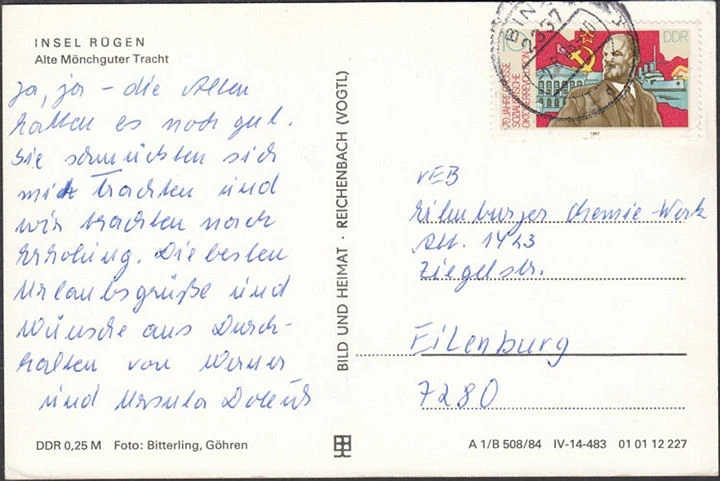 INSEL RÜGEN
Alte Mönchguter Tracht
Ja, ja – die Alten
hatten es noch gut.
Sie schmückten sich
mit Trachten und
wir trachten nach
Erholung. Die besten
Urlaubsgrüße und
Wünsche aus Durch-
halten von Werner
und Ursula
DDR 0,25 M Foto: Bitterling, Göhren
BILD UND HEIMAT · REICHENBACH (VOGTL)
BINZ
2337
10
DDR
70 JAHRE GROSSE
SOZIALISTISCHE
OKTOBERREVOLUTION
1987
VEB
Eilenburger Chemie-Werk
Abt. 1423
Ziegelstr.
Eilenburg
7280
A 1/B 508/84 IV-14-483 01 01 12 227